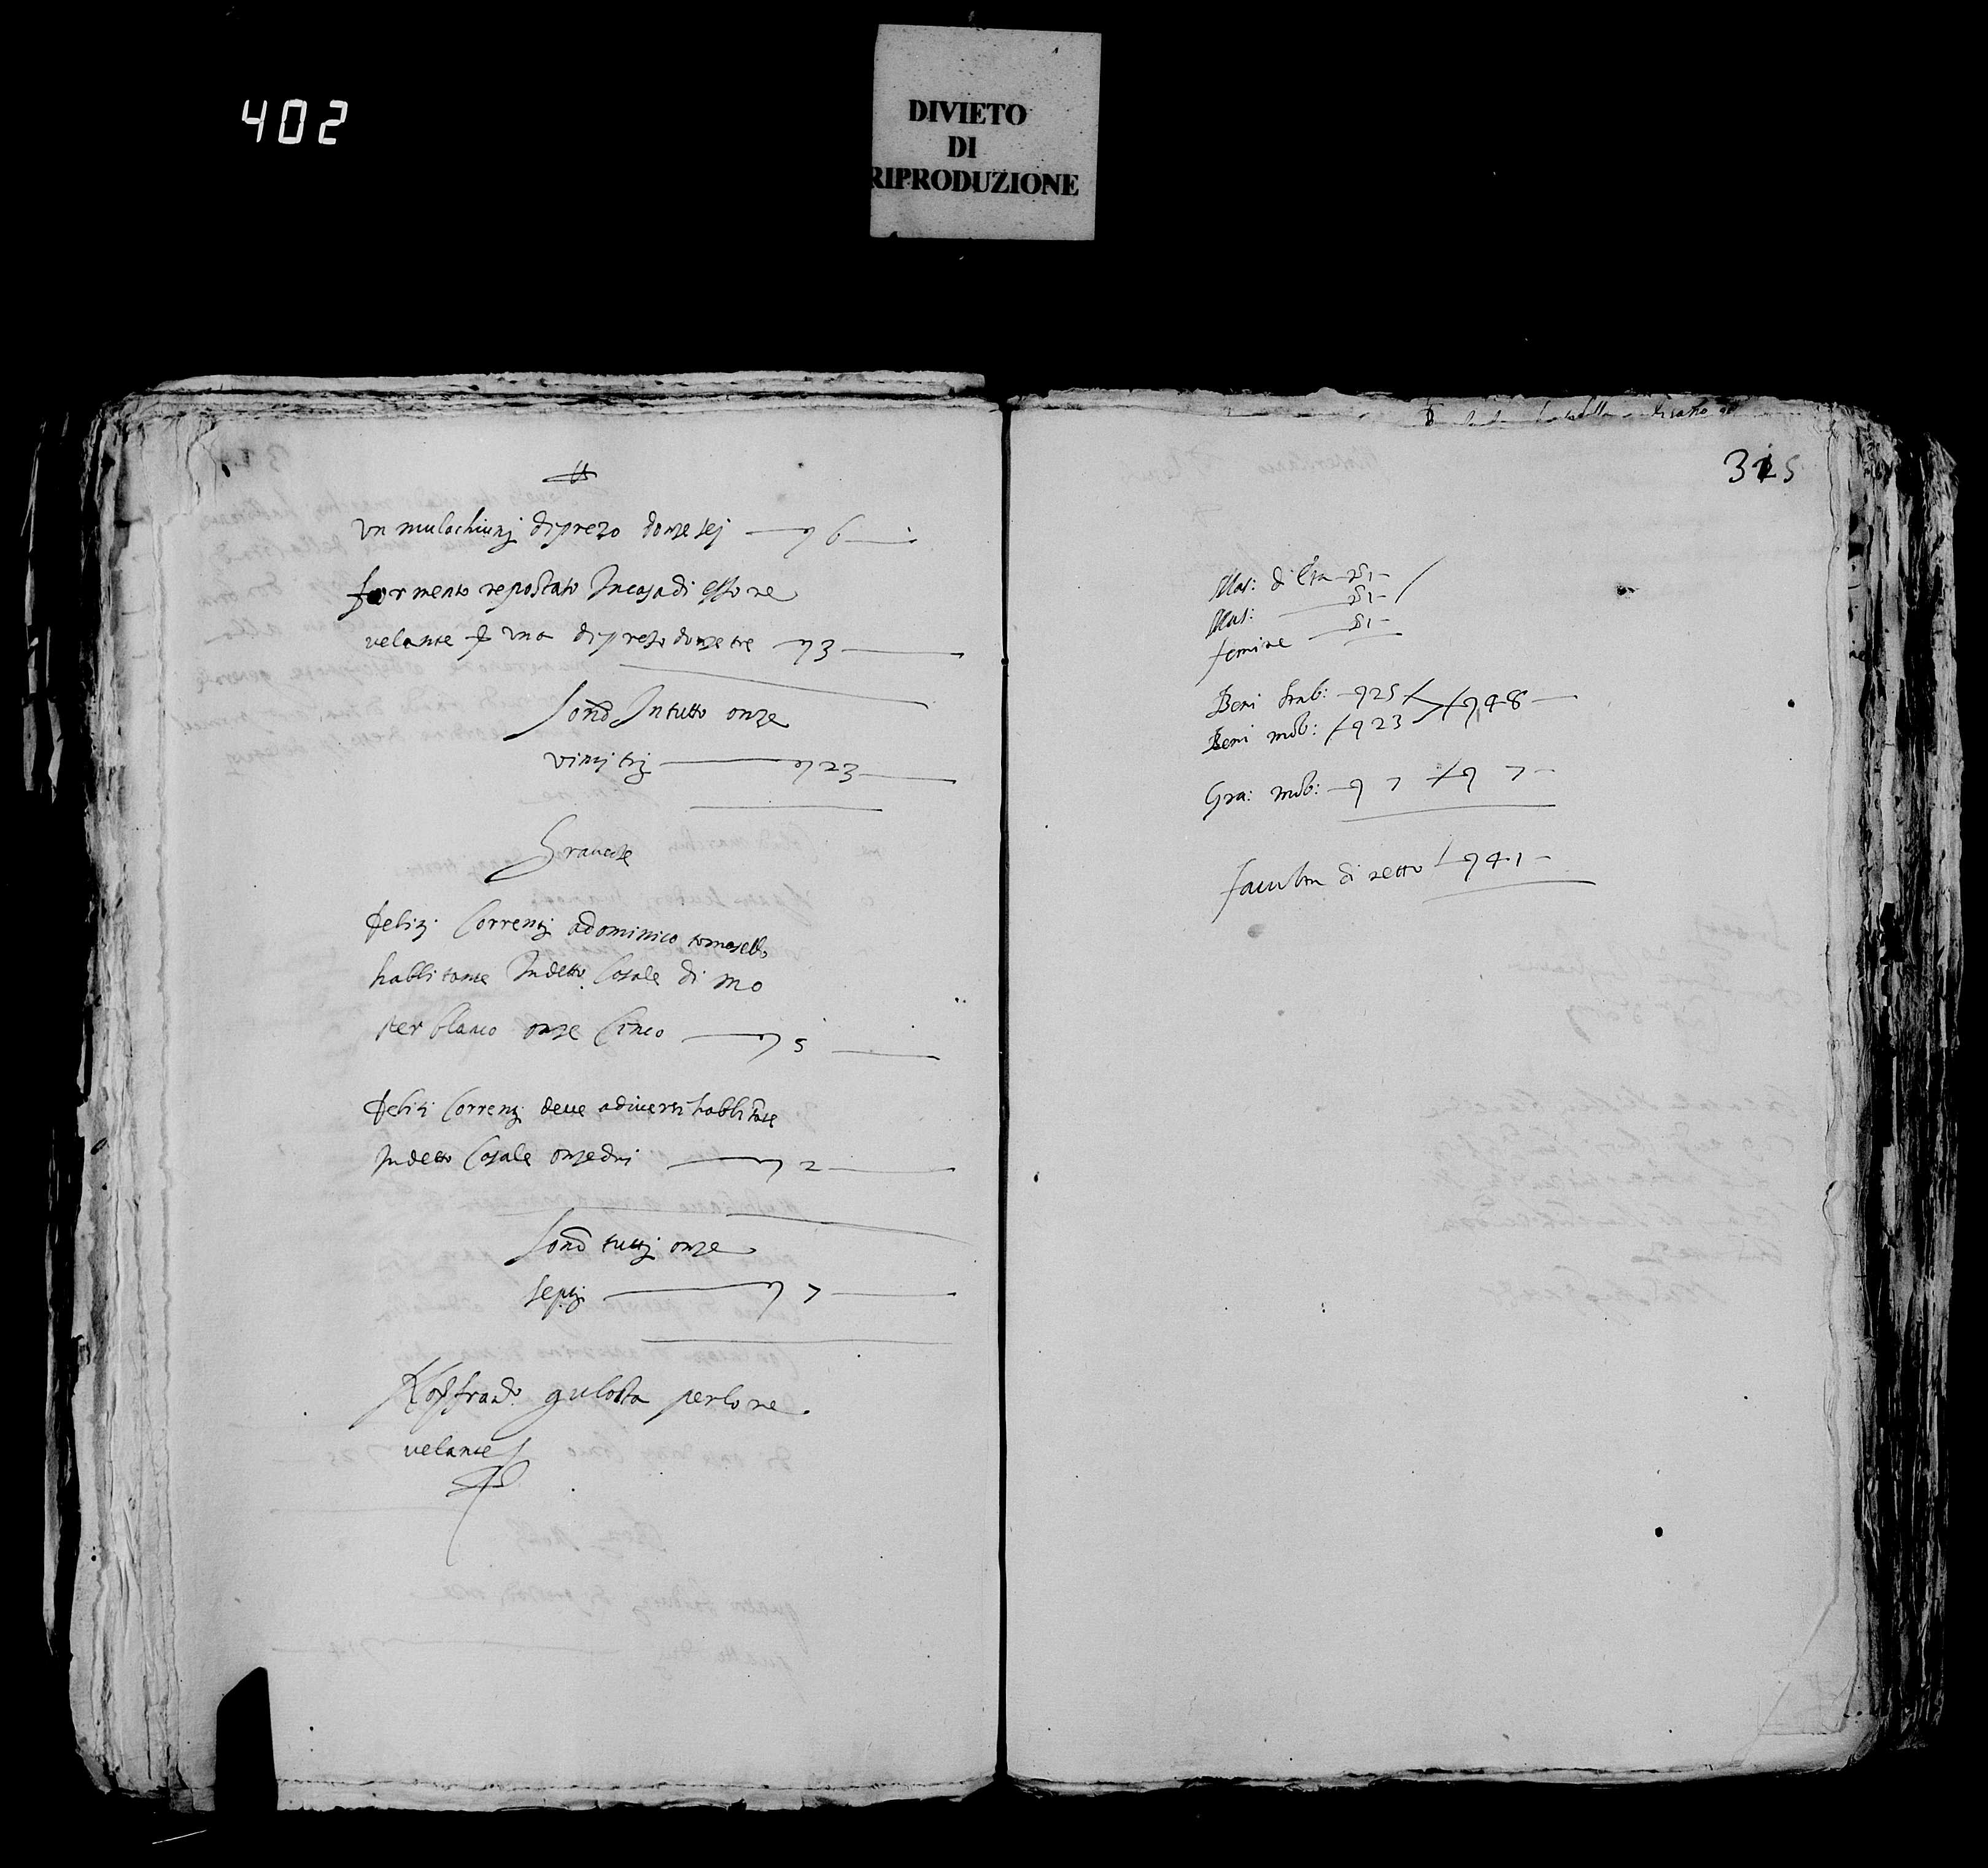 402
DIVIETO
DI
RIPRODUZIONE
un mulachiunj di prezo donze sej 6
formento repostato In casa di esso re
velante una di prezo donze tre 3
Sono In tutto onze
vinti trj 23
Graveze
felizi Correnj a dominico tomasello
habbitante In detto Casale di mo
ster blanco onze Cinco 5
felizi Correnj deve a diversi habbitante
In detto Casale onze dui 2
Sono tuttj onze
septj 7
gulotta per lo re
velante
325
Mas: di Eta 1
Mas: 1
femine 1
Beni stab: 25
Beni mob: 23 48
Gra: mob: 7 7
faculta di netto 41